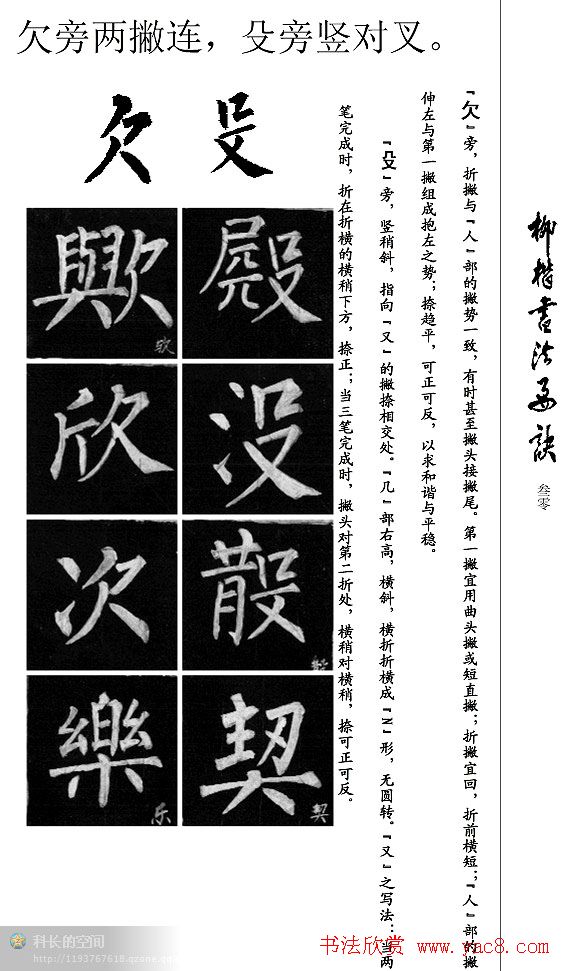 欠旁两撇连，殳旁竖对叉。
『欠』旁，折撇与『人』部的撇势一致，有时甚至撇头接撇尾。第一撇宜用曲头撇或短直撇；折撇宜回，折前横短；『人』部的撇
伸左与第一撇组成抱左之势；捺趋平，可正可反，以求和谐与平稳。
『殳』旁，竖稍斜，指向『又』的撇捺相交处。『几』部右高，横斜，横折折横成『乙』形，无圆转。『又』之写法：当两
笔完成时，折在折横的横稍下方，捺正；当三笔完成时，撇头对第二折处，横稍对横稍，捺可正可反。
欠 殳
歟 殿
欤
欣 没
次
樂 契
乐 契
柳楷书法要诀
叁零
科长的空间
http://1193767618.qzone.qq
书法欣赏 www.yac8.com